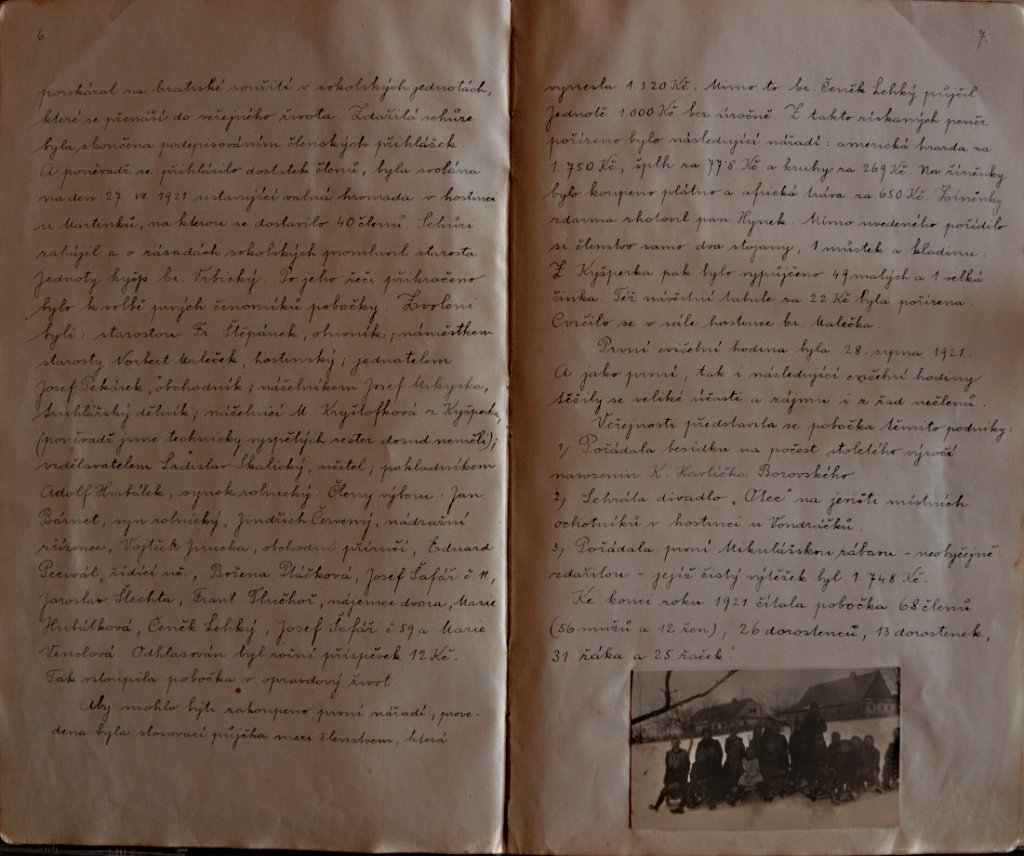 6.
poukázal na bratrské soužití v sokolských jednotách,
které se přenáší do veřejného života. Zdařilá schůze
byla skončena podepisováním členských přihlášek.
A poněvadž se přihlásilo dostatek členů, byla svolána
na den 27. VII. 1921 ustavující valná hromada v hostinci
u Martinků, na kterou se dostavilo 40 členů. Schůzi
zahájil a o zásadách sokolských promluvil starosta
Jednoty kyšp. br. Vrbický. Po jeho řeči přikročeno
bylo k volbě prvých činovníků pobočky. Zvoleni
byli: starostou Fr. Štěpánek, obuvník; náměstkem
starosty Norbert Maleček, hostinský; jednatelem
Josef Pekárek, obchodník; náčelníkem Josef Mikyska,
truhlářský dělník; náčelnicí M. Kryštofková z Kyšperka,
(poněvadž jsme technicky vyspělých sester dosud neměli);
vzdělavatelem Ladislav Skalický, učitel; pokladníkem
Adolf Hubálek, synek rolnický. Členy výboru: Jan
Bárnet, syn rolnický, Jindřich Červený, nádražní
zřízenec, Vojtěch Jirucha, obchodní příručí, Eduard
Pecivál, řídící uč., Božena Ptáčková, Josef Šafář č. 11,
Jaroslav Šlechta, Frant. Tlučhoř, nájemce dvora, Marie
Hubálková, Čeněk Lehký, Josef Šafář č 59 a Marie
Venclová. Odhlasován byl roční příspěvek 12 Kč.
Tak vstoupila pobočka v opravdový život.
Aby mohlo býti zakoupeno první nářadí, prove-
dena byla slosovací půjčka mezi členstvem, která
7.
vynesla 1.320 Kč. Mimo to br. Čeněk Lehký půjčil
Jednotě 1.000 Kč bez úročně. Z takto získaných peněz
pořízeno bylo následující nářadí: americká hrazda za
1.750 Kč, šplh za 778 Kč a kruhy za 269 Kč. Na žíněnky
bylo koupeno plátno a africká tráva za 650 Kč. Žíněnky
zdarma zhotovil pan Hynek. Mimo uvedeného pořídilo
si členstvo samo dva stojany, 1 můstek a kladinu.
Z Kyšperka pak bylo vypůjčeno 49 malých a 1 velká
činka. Též návěstní tabule za 22 Kč byla pořízena.
Cvičilo se v sále hostince br. Malečka.
První cvičební hodina byla 28. srpna 1921.
A jako první, tak i následující cvičební hodiny
těšily se veliké účasti a zájmu i z řad nečlenů.
Veřejnosti představila se pobočka těmito podniky:
1, Pořádala besídku na počest stoletého výročí
narozenin K. Havlíčka Borovského.
2, Sehrála divadlo „Otec" na jevišti místních
ochotníků v hostinci u Vondráčků.
3, Pořádala první Mikulášskou zábavu - neobyčejně
zdařilou - jejíž čistý výtěžek byl 1.748 Kč.
Ke konci roku 1921 čítala pobočka 68 členů
(56 mužů a 12 žen), 26 dorostenců, 13 dorostenek,
31 žáka a 25 žaček.